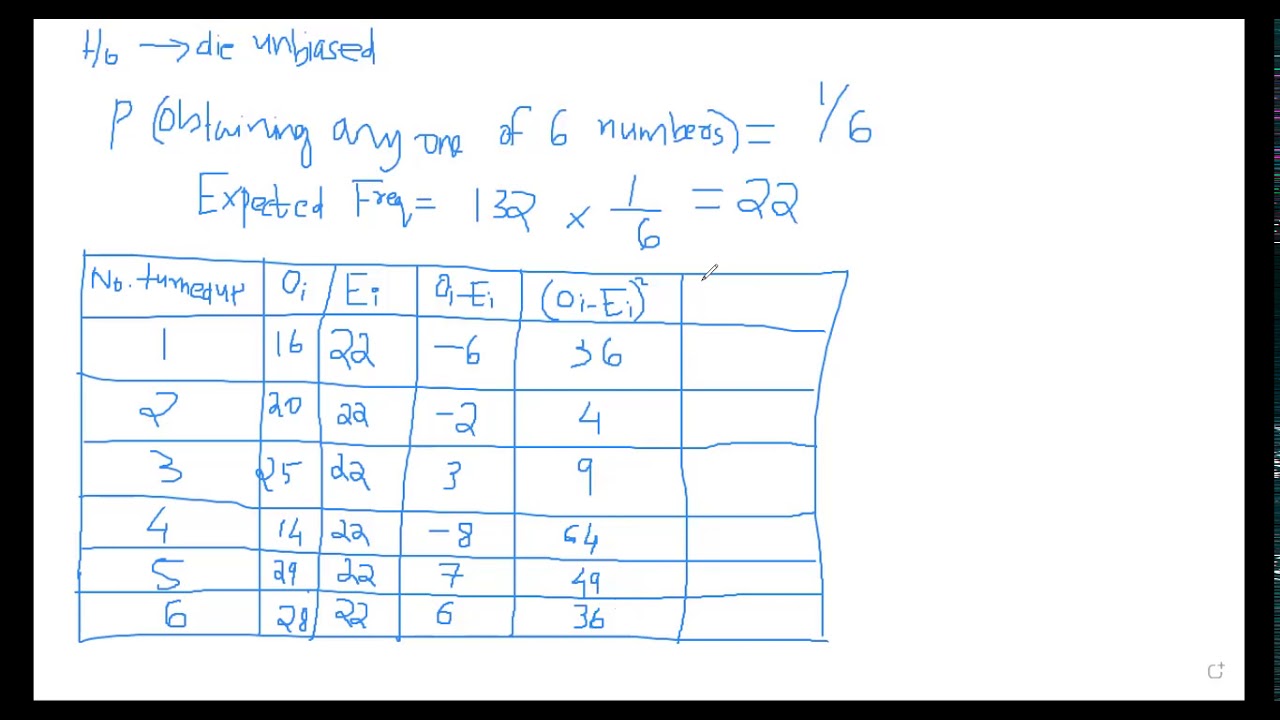 H₀ → die unbiased
P (Obtaining any one of 6 numbers) = 1/6
Expected Freq = 132 × 1/6 = 22
No. turnedup Oᵢ Eᵢ Oᵢ-Eᵢ (Oᵢ-Eᵢ)²
1 16 22 -6 36
2 20 22 -2 4
3 25 22 3 9
4 14 22 -8 64
5 29 22 7 49
6 28 22 6 36